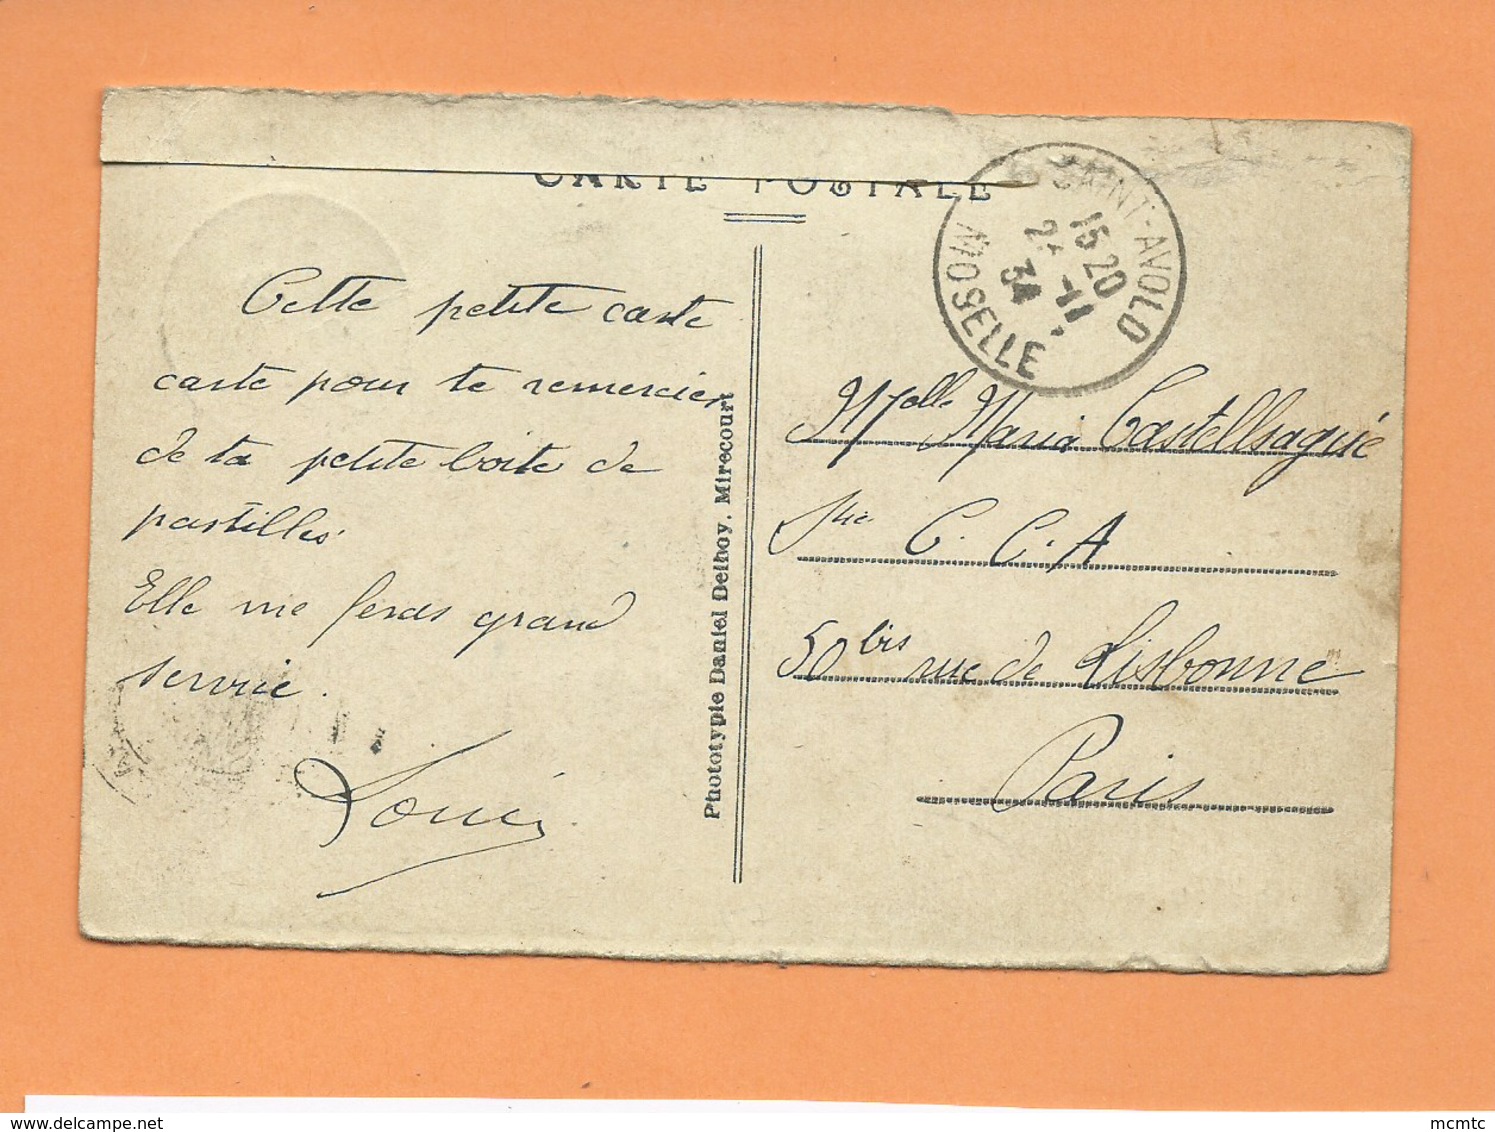 CARTE POSTALE
SAINT-AVOLD
15 20
-11
34
MOSELLE
Cette petite carte
carte pour te remercier
de ta petite boite de
pastilles
Elle me feras grand
service.
Louis
Phototypie Daniel Delboy. Mirecourt
Melle Maria Castellsagué
Sté C. C. A
50bis rue de Lisbonne
Paris
www.delcampe.net
mcmtc